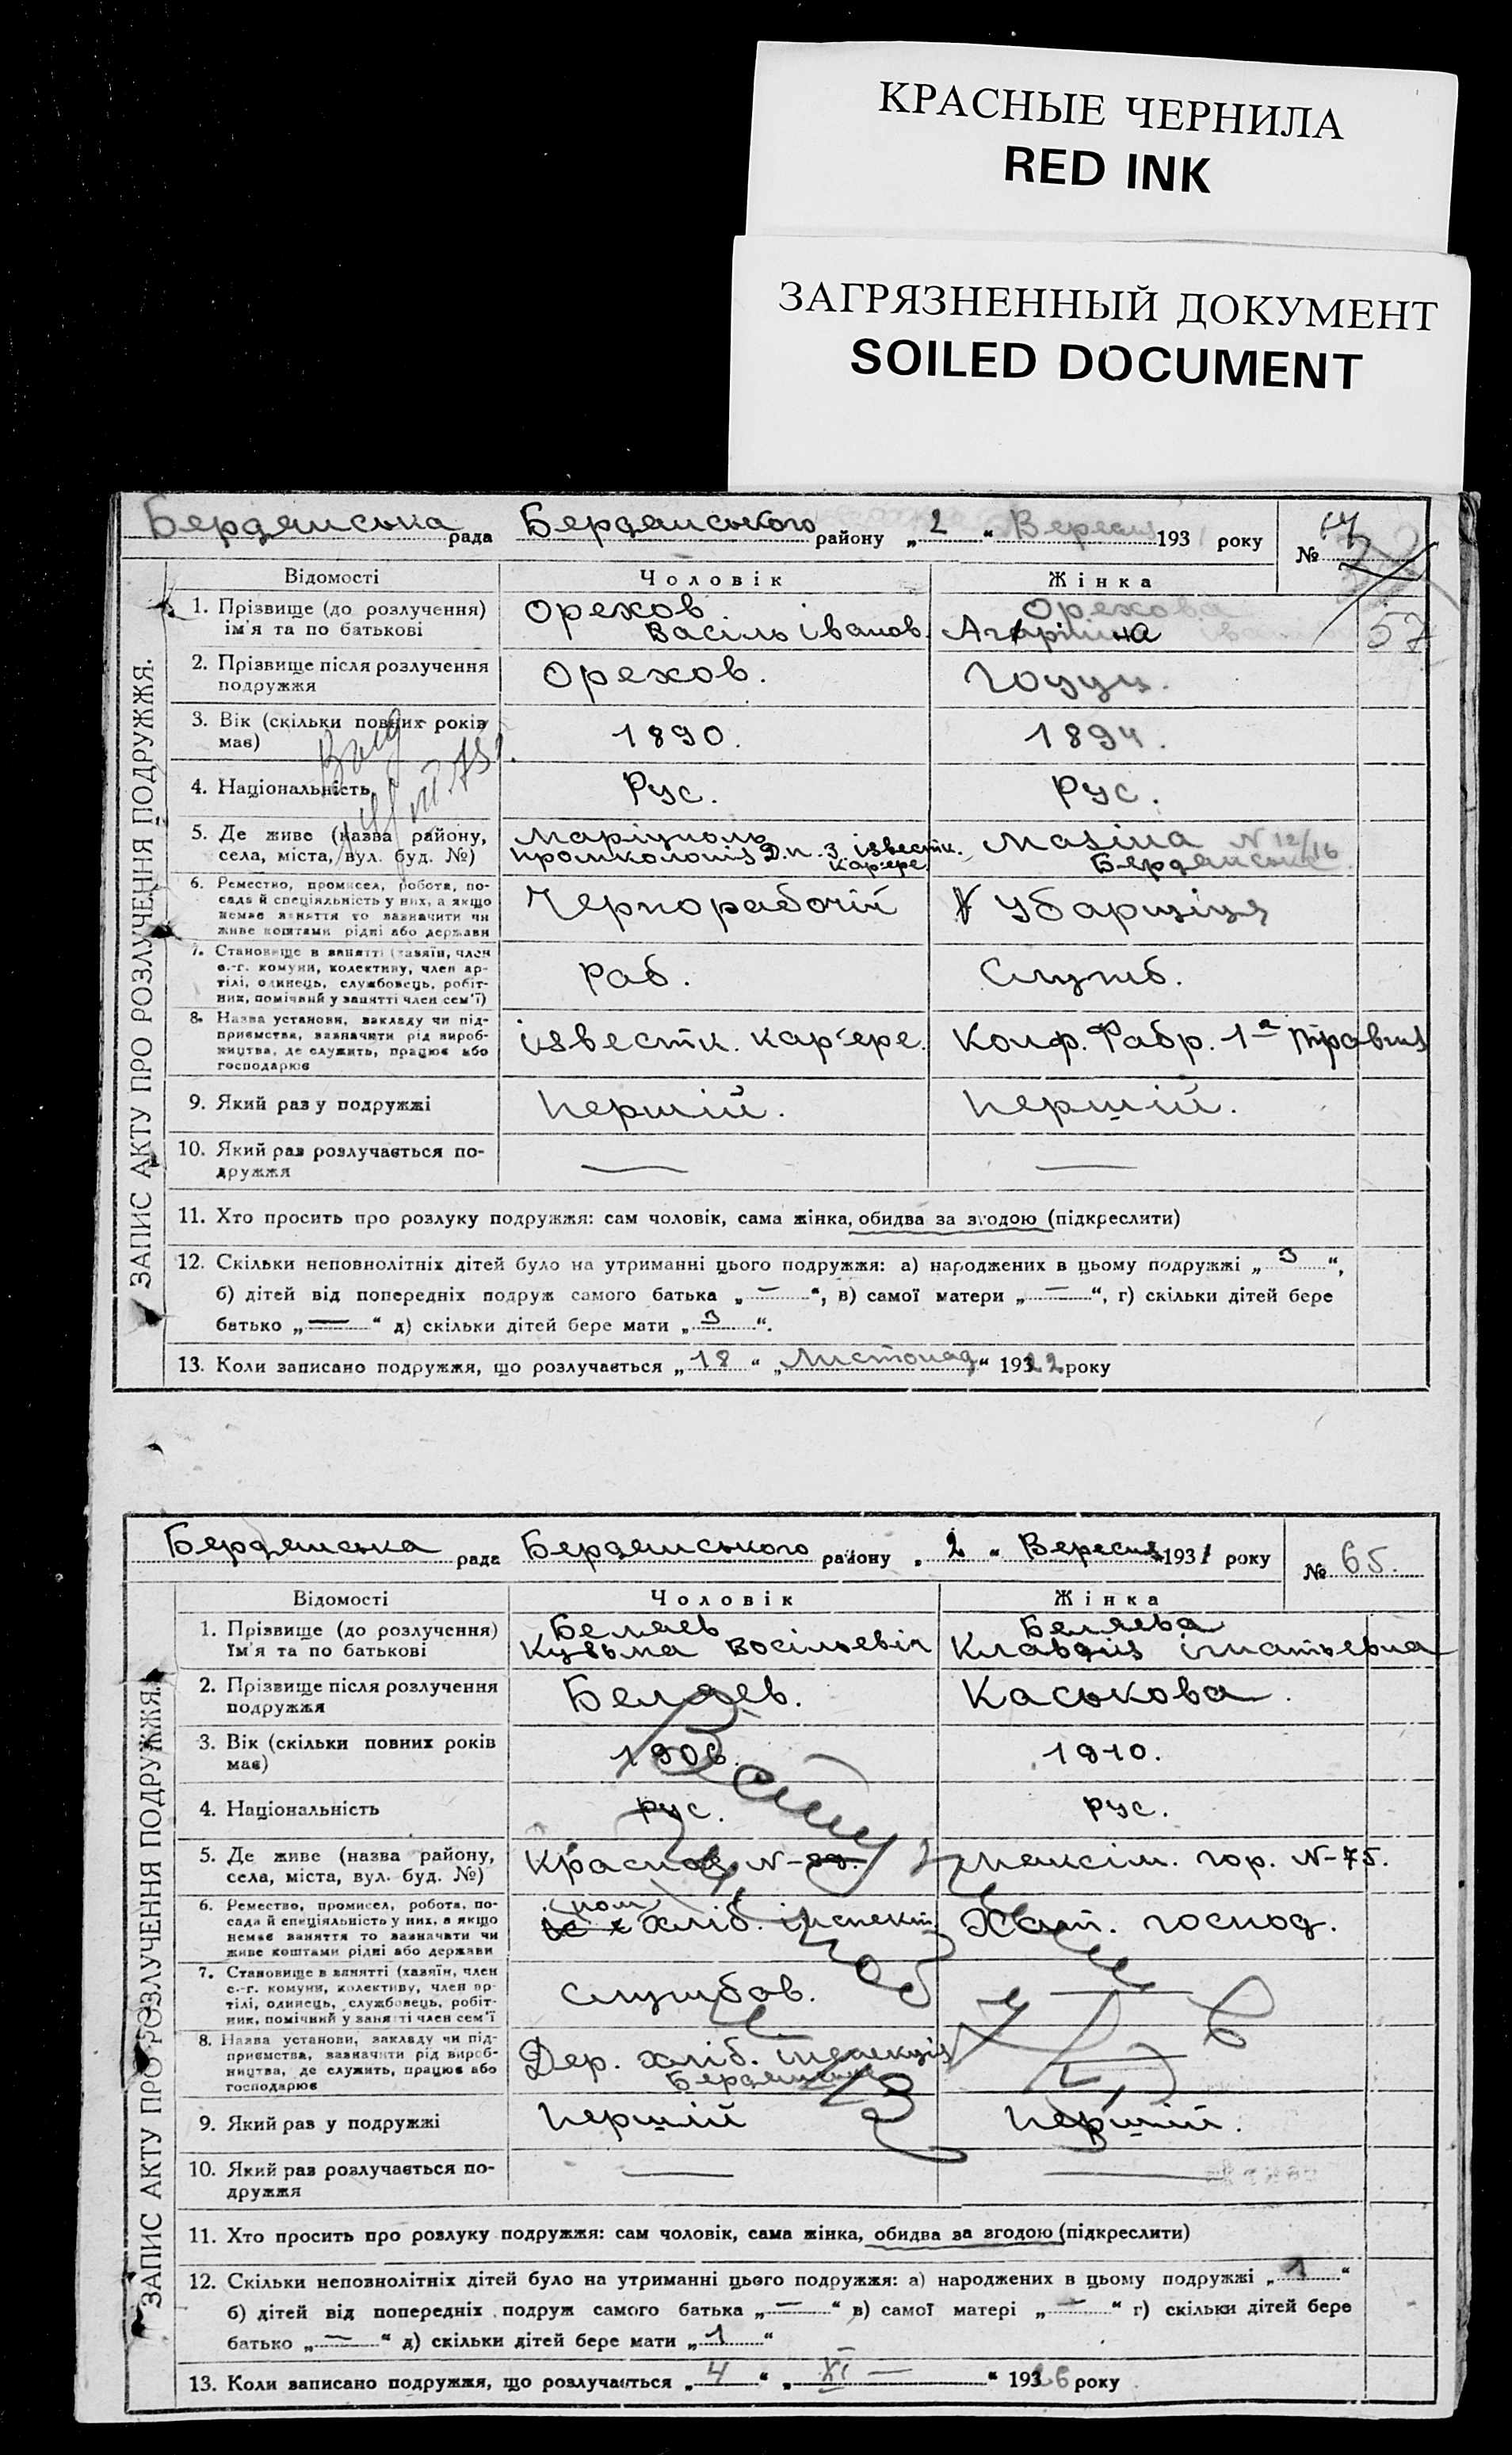 КРАСНЫЕ ЧЕРНИЛА
RED INK
ЗАГРЯЗНЕННЫЙ ДОКУМЕНТ
SOILED DOCUMENT
Бердянська рада Бердянського району „2“ Вересня 193 року №
57
ЗАПИС АКТУ ПРО РОЗЛУЧЕННЯ ПОДРУЖЖЯ.
Відомості Чоловік Жінка
1. Прізвище (до розлучення) ім'я та по батькові
Орехов
Васіль іванов.
Орехова
2. Прізвище після розлучення подружжя
Орехов.
3. Вік (скільки повних років має)
1890.
1894.
4. Національність
Рус.
Рус.
5. Де живе (назва району, села, міста, вул. буд. №)
Маріуполь
промколонія Д.п. 3. ізвестк.
кар'ере.
Мазіна N 12/16
Бердянська
6. Ремество, промисел, робота, посада й спеціяльність у них, а якщо немає заняття то зазначити чи живе коштами рідні або держави
Чернорабочій
Убарщіця
7. Становище в занятті (хазяїн, член с.-г. комуни, колективу, член артілі, одинець, службовець, робітник, помічний у занятті член сем'ї)
Раб.
Служб.
8. Назва установи, закладу чи підприємства, зазначити рід виробництва, де служить, працює або господарює
ізвестк. кар'ере.
Конф. Фабр. 1а травня
9. Який раз у подружжі
Першій.
Першій.
10. Який раз розлучається подружжя
— —
11. Хто просить про розлуку подружжя: сам чоловік, сама жінка, обидва за згодою (підкреслити)
12. Скільки неповнолітніх дітей було на утриманні цього подружжя: а) народжених в цьому подружжі „3“,
б) дітей від попередніх подруж самого батька „—“, в) самої матери „—“, г) скільки дітей бере
батько „—“ д) скільки дітей бере мати „3“.
13. Коли записано подружжя, що розлучається „18“ „Листопад“ 1922 року
Бердянська рада Бердянського району „2“ Вересня 1931 року № 65.
ЗАПИС АКТУ ПРО РОЗЛУЧЕННЯ ПОДРУЖЖЯ.
Відомості Чоловік Жінка
1. Прізвище (до розлучення) Ім'я та по батькові
Беляев
Кузьма Восільевіч
Беляева
Клавдія ігнатьевна
2. Прізвище після розлучення подружжя
Беляев.
Каськова.
3. Вік (скільки повних років має)
1906.
1910.
4. Національність
рус.
рус.
5. Де живе (назва району, села, міста, вул. буд. №)
Красная N-
Максім. гор. N-75.
6. Ремество, промисел, робота, посада й спеціяльність у них, а якщо немає заняття то зазначити чи живе коштами рідні або держави
пом
хліб. інспект.
Хат. господ.
7. Становище в занятті (хазяїн, член с.-г. комуни, колективу, член артілі, одинець, службовець, робітник, помічний у занятті член сем'ї
Службов.
8. Назва установи, закладу чи підприємства, зазначити рід виробництва, де служить, працює або господарює
Дер. хліб. інспекція
9. Який раз у подружжі
Першій
Першій.
10. Який раз розлучається подружжя
— —
11. Хто просить про розлуку подружжя: сам чоловік, сама жінка, обидва за згодою (підкреслити)
12. Скільки неповнолітніх дітей було на утриманні цього подружжя: а) народжених в цьому подружжі „1“
б) дітей від попередніх подруж самого батька „—“ в) самої матері „—“ г) скільки дітей бере
батько „—“ д) скільки дітей бере мати „1“
13. Коли записано подружжя, що розлучається „4“ „XI —“ 1926 року